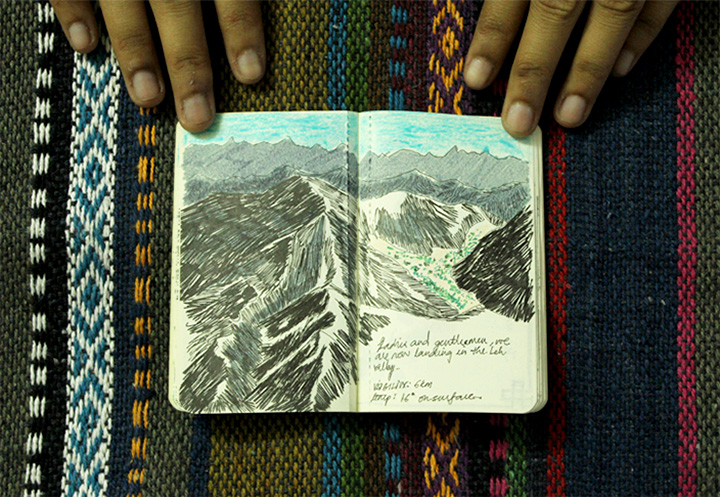 Ladies and gentlemen, we
are now landing in the Leh
valley.
VISIBILITY: 6km
temp: 16° on surface